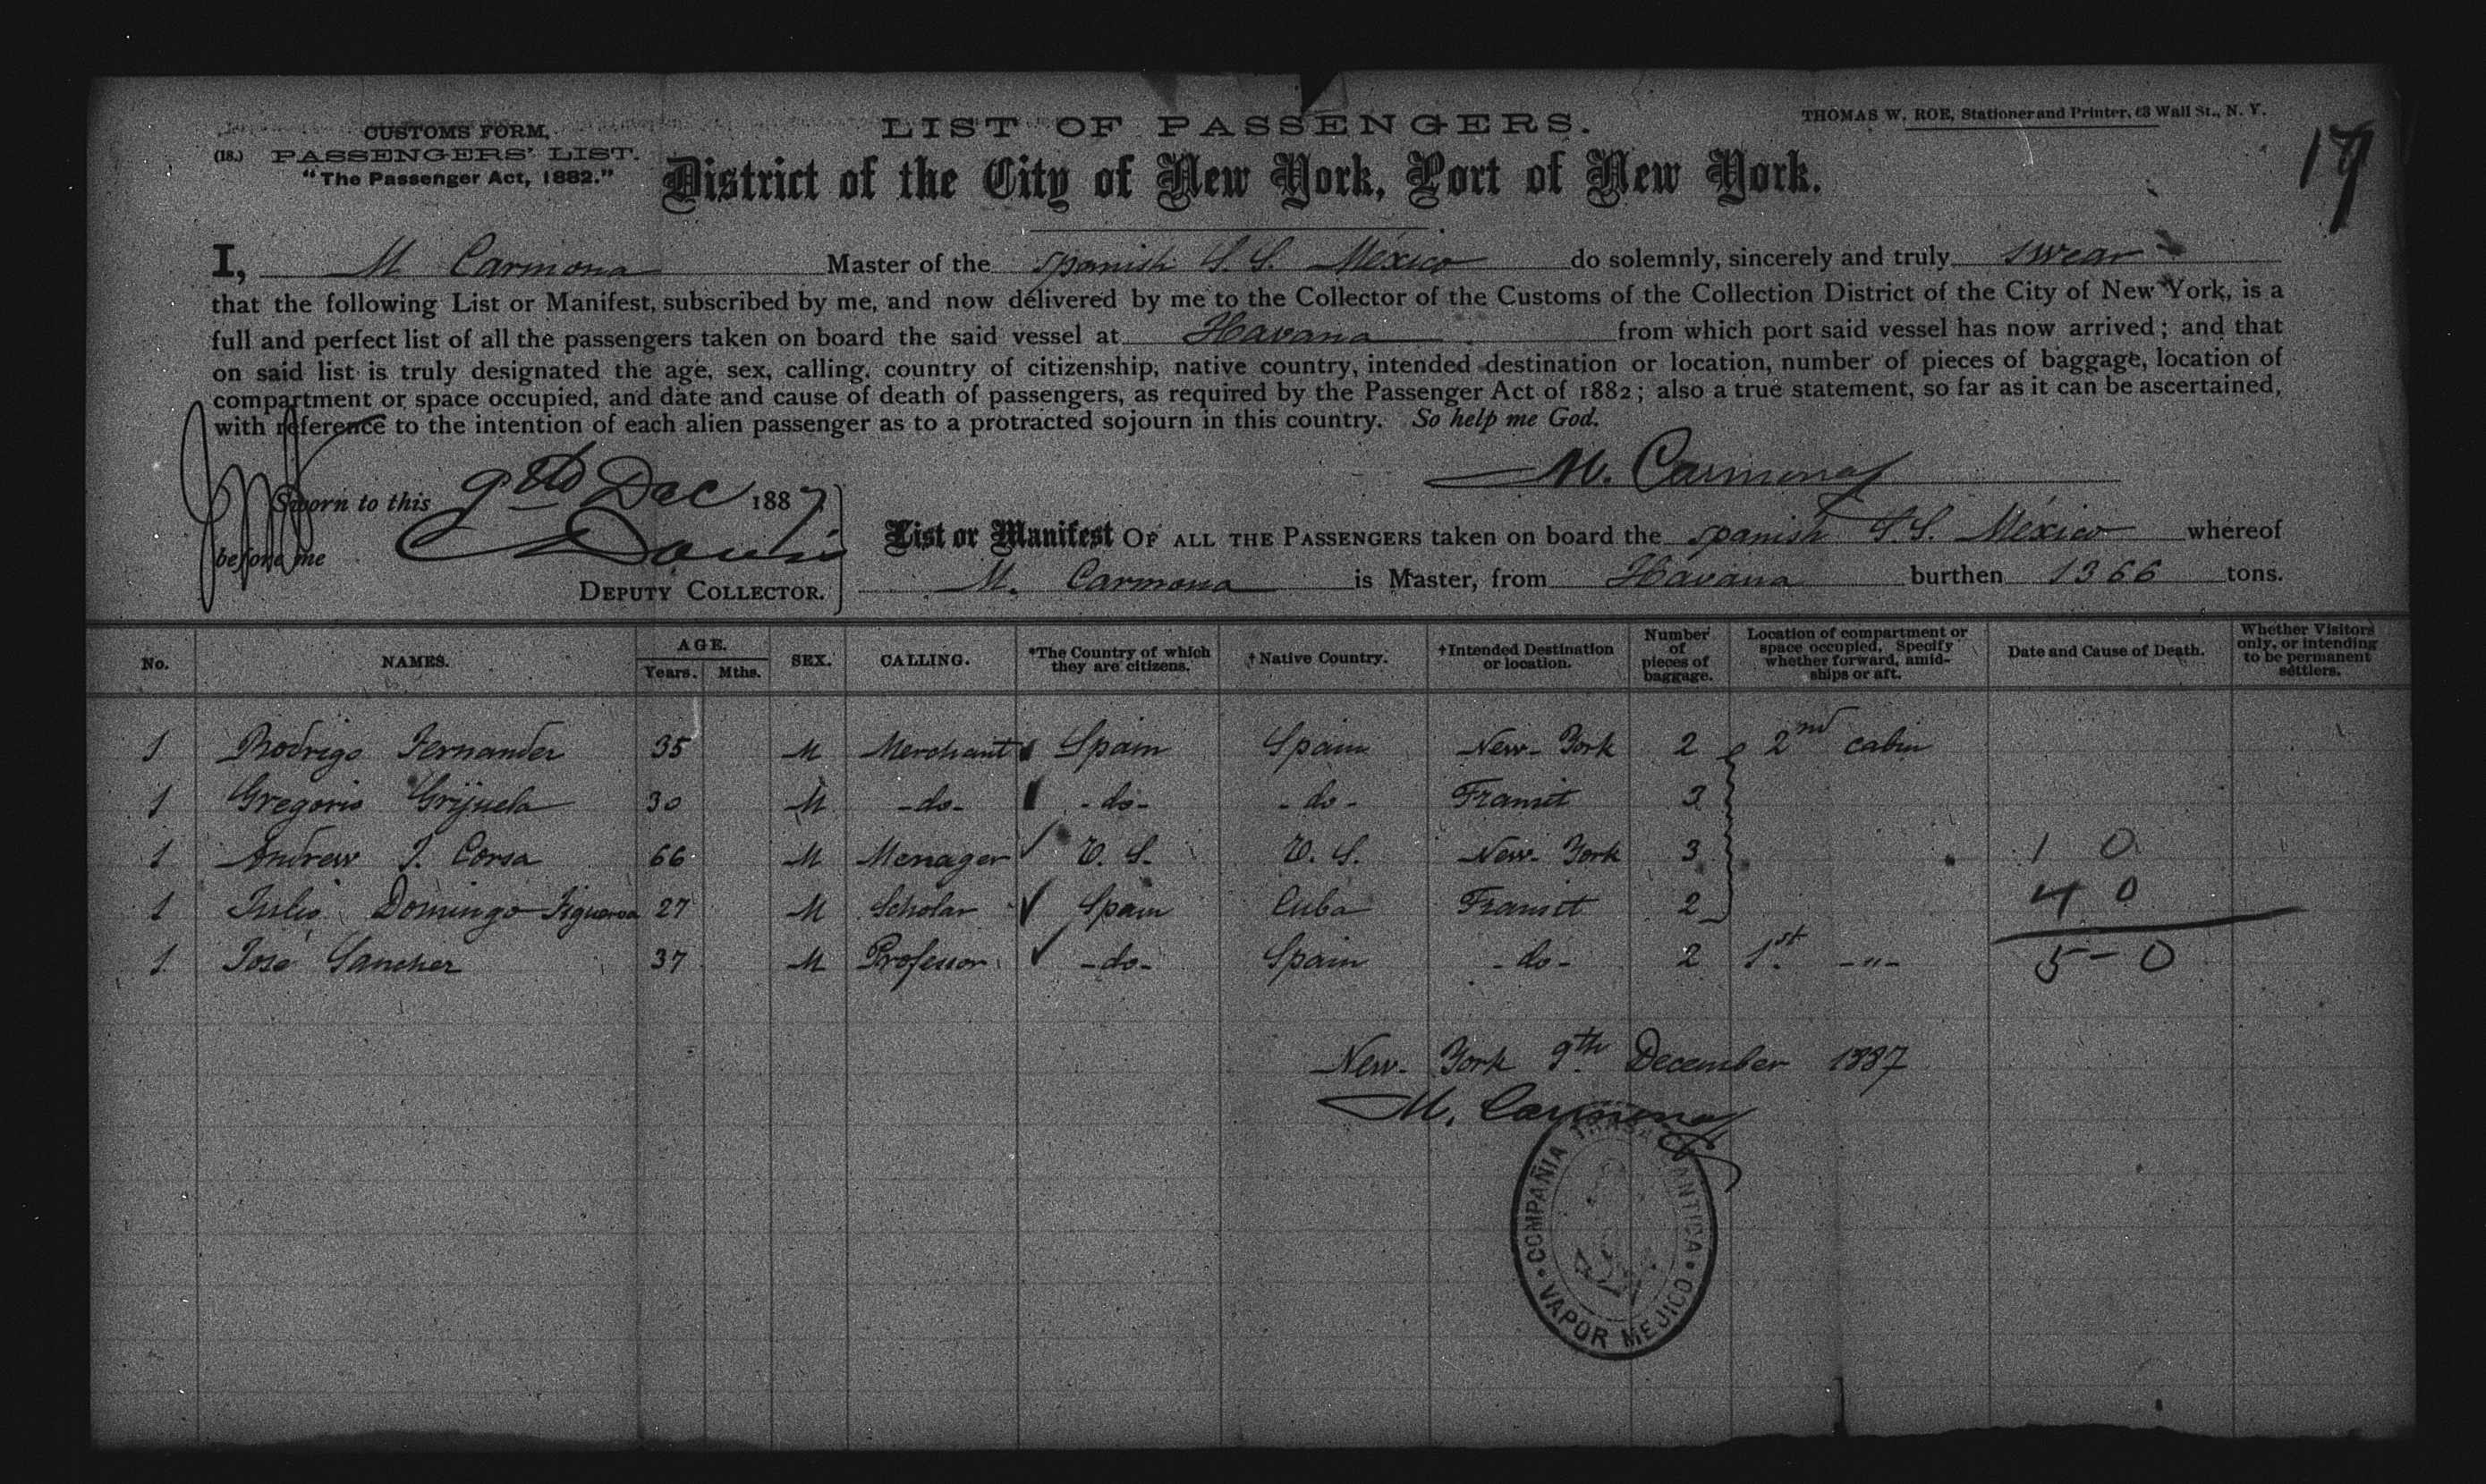 CUSTOMS FORM,
(18.) PASSENGERS' LIST.
"The Passenger Act, 1882."
LIST OF PASSENGERS.
THOMAS W. ROE, Stationer and Printer, 63 Wall St., N. Y.
17
District of the City of New York, Port of New York.
I, M Carmona Master of the Spanish S.S. México do solemnly, sincerely and truly swear
that the following List or Manifest, subscribed by me, and now delivered by me to the Collector of the Customs of the Collection District of the City of New York, is a
full and perfect list of all the passengers taken on board the said vessel at Havana from which port said vessel has now arrived; and that
on said list is truly designated the age, sex, calling, country of citizenship, native country, intended destination or location, number of pieces of baggage, location of
compartment or space occupied, and date and cause of death of passengers, as required by the Passenger Act of 1882; also a true statement, so far as it can be ascertained,
with reference to the intention of each alien passenger as to a protracted sojourn in this country. So help me God.
M. Carmona
Sworn to this 9th Dec 1887
before me Davis
DEPUTY COLLECTOR.
List or Manifest OF ALL THE PASSENGERS taken on board the Spanish S.S. México whereof
M. Carmona is Master, from Havana burthen 1366 tons.
No. NAMES. AGE. Years. Mths. SEX. CALLING. *The Country of which they are citizens. †Native Country. †Intended Destination or location. Number of pieces of baggage. Location of compartment or space occupied. Specify whether forward, amidships or aft. Date and Cause of Death. Whether Visitors only, or intending to be permanent settlers.
1 Rodrigo Fernander 35 M Merchant Spain Spain New-York 2 2nd cabin
1 Gregorio Grijuela 30 M -do- -do- -do- Transit 3
1 Andrew J. Corsa 66 M Menager U. S. U. S. New-York 3 1 0
1 Julio Domingo Figueroa 27 M Scholar Spain Cuba Transit 2 4 0
1 José Sancher 37 M Professor -do- Spain -do- 2 1st -"- 5-0
New-York 9th December 1887
M. Carmona
COMPAÑIA TRASATLANTICA
VAPOR MEJICO